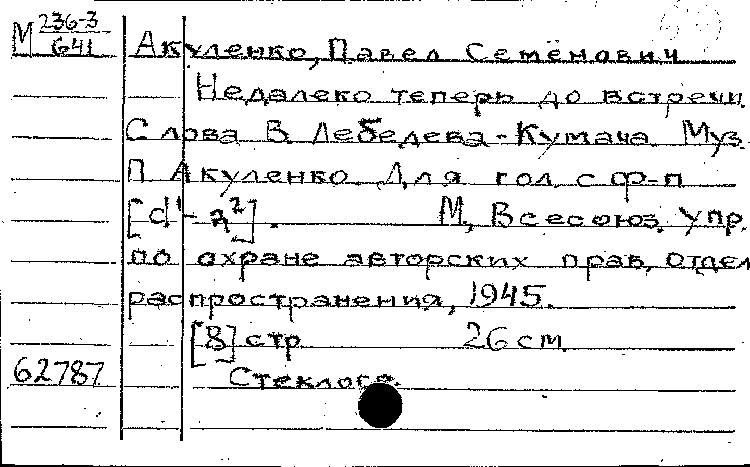 М 236-3
641
Акуленко, Павел Семёнович
Недалеко теперь до встречи.
Слова В. Лебедева-Кумача. Муз.
П. Акуленко. Для гол. с ф-п.
[d¹ - a²]. М, Всесоюз. упр.
по охране авторских прав, отдел
распространения, 1945.
[8] стр. 26 см.
62787 Стеклогр.